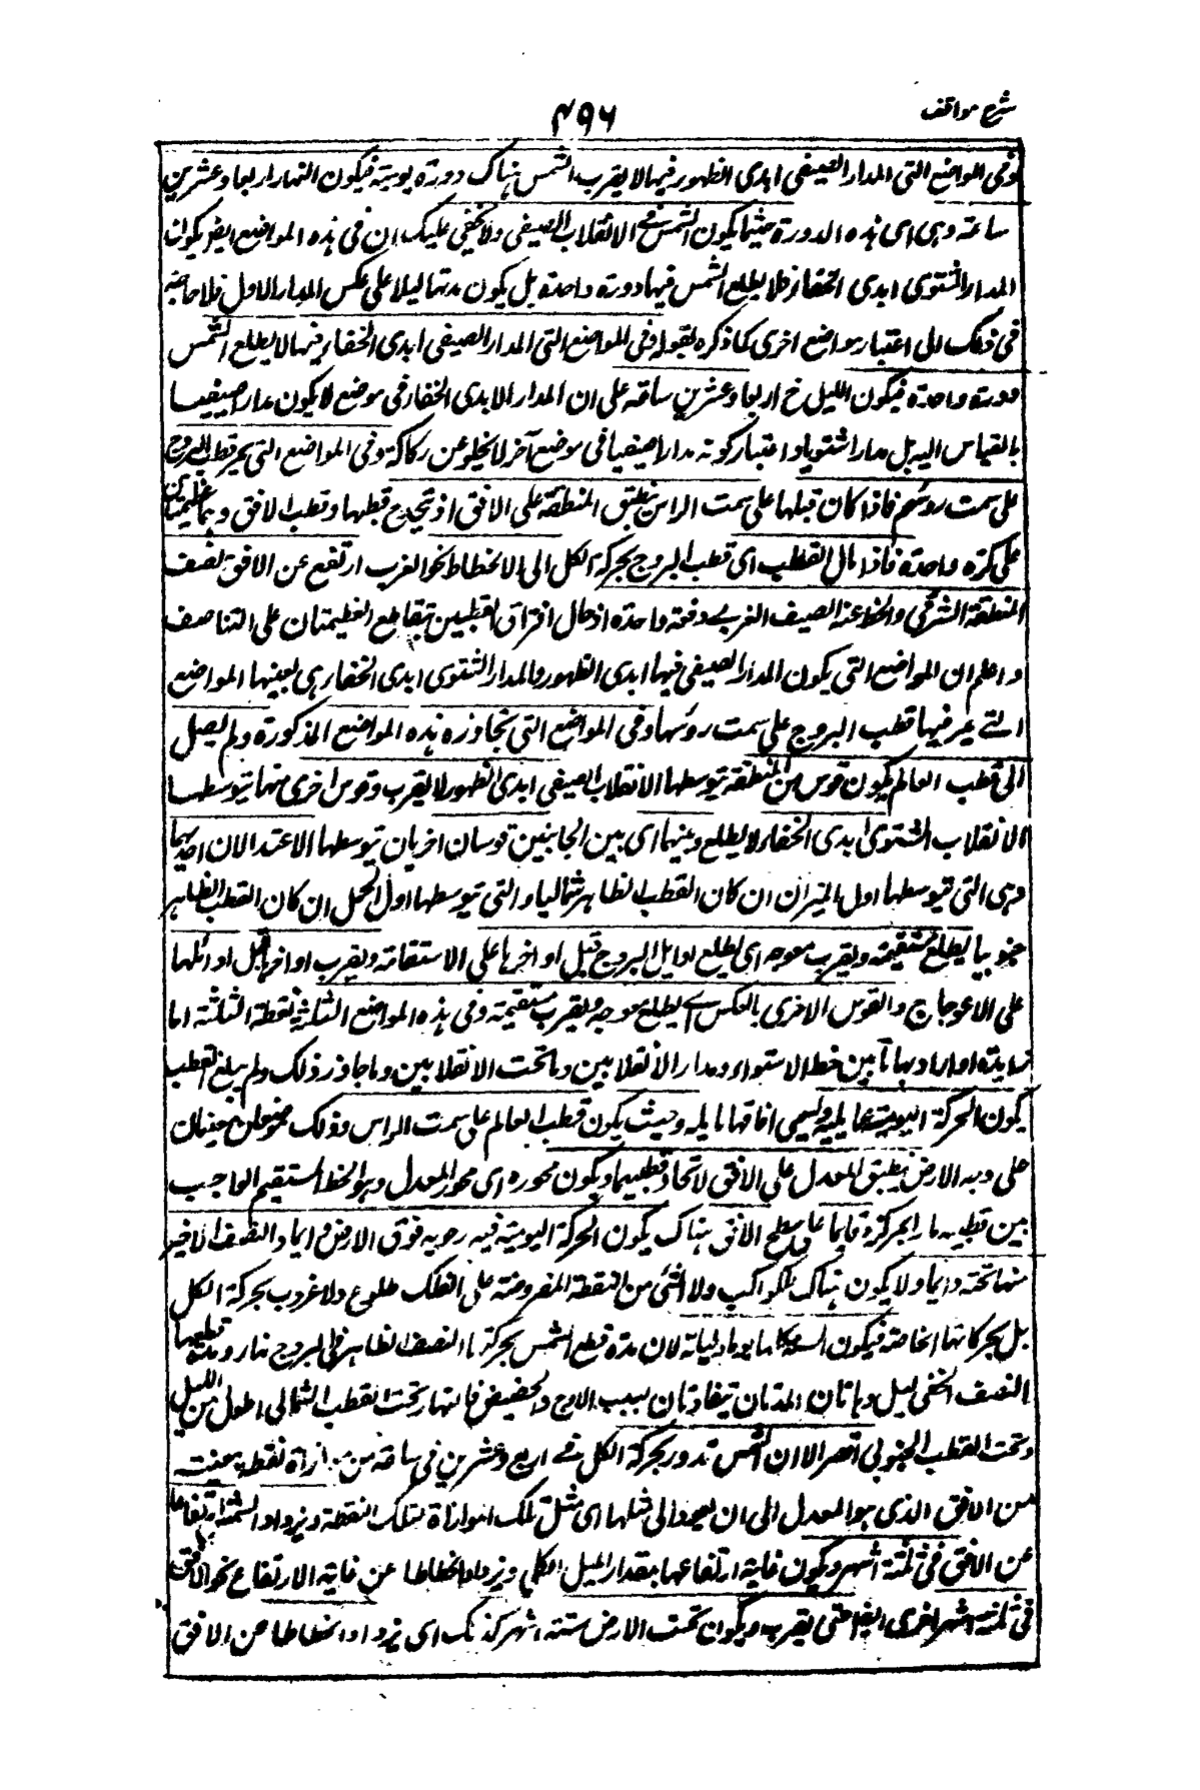 شرح مواقف
۴۹۶
وفى المواضع التى المدار الصيفى ابدى الظهور فيها لا يغرب الشمس هناك دورة يومية فيكون النهار اربعا وعشرين
ساعة وهى اى هذه الدورة حيثما يكون الشمس فى الانقلاب الصيفى ولا يخفى عليك ان فى هذه المواضع ايضا يكون
المدار الشتوى ابدى الخفاء فلا يطلع الشمس فيها دورة واحدة بل يكون مدتها ليلا على عكس المدار الاول فلا حاجة
فى ذلك الى اعتبار مواضع اخرى كما ذكره بقوله وفى المواضع التى المدار الصيفى ابدى الخفاء فيها لا يطلع الشمس
دورة واحدة فيكون الليل ح اربعا وعشرين ساعة على ان المدار الابدى الخفاء فى موضع لا يكون مدارا صيفيا
بالقياس اليه بل مدارا شتويا واعتبار كونه مدارا صيفيا فى موضع آخر لا يخلو عن ركاكة وفى المواضع التى يمر قطب البروج
على سمت رؤسهم فاذا كان قبلها على سمت الراس ينطبق المنطقة على الافق اذ يتحد ح قطبها وقطب الافق وهما عظيمتان
على كرة واحدة فاذا مال القطب اى قطب البروج بحركة الكل الى الانحطاط نحو الغرب ارتفع عن الافق نصف
المنطقة الشرقى وانحط عنه النصف الغربى دفعة واحدة اذ حال افتراق القطبين يتقاطع العظيمتان على التناصف
واعلم ان المواضع التى يكون المدار الصيفى فيها ابدى الظهور والمدار الشتوى ابدى الخفاء هى بعينها المواضع
التى يمر فيها قطب البروج على سمت رؤسها وفى المواضع التى تجاوزه هذه المواضع المذكورة ولم يصل
الى قطب العالم يكون قوس من المنطقة يتوسطها الانقلاب الصيفى ابدى الظهور لا يغرب وقوس اخرى منها يتوسطها
الانقلاب الشتوى ابدى الخفاء لا يطلع وبينهما اى بين الجانبين قوسان اخريان يتوسطها الاعتدالان احديهما
وهى التى يتوسطها اول الميزان ان كان القطب الظاهر شماليا والتى يتوسطها اول الحمل ان كان القطب الظاهر
جنوبيا يطلع مستقيمة ويغرب معوجه اى يطلع اوايل البروج قبل اواخرها على الاستقامة ويغرب اواخرها قبل اوائلها
على الاعوجاج والقوس الاخرى بالعكس اى يطلع معوجة ويغرب مستقيمة وفى هذه المواضع الثلثة
يكون الحركة اليومية حمايلية ويسمى افاقها مايله وحيث يكون قطب العالم على سمت الراس وذلك موضعان معينان
على وجه الارض ينطبق المعدل على الافق لاتحاد قطبيهما ويكون محوره اى محور المعدل وهو الخط المستقيم الواصل
بين قطبيه مارا بمركزه قايما على سطح الافق هناك يكون الحركة اليومية فيه رحوية فوق الارض دايما والنصف الاخير
منها تحته دايما ولا يكون هناك لكوكب ولا لشئ من النقطة المفروضة على الفلك طلوع ولا غروب بحركة الكل
بل بحركاتها الخاصة فيكون السنة كلها يوما وليلة لان مدة قطع الشمس بحركتها النصف الظاهر من البروج نهار ومدة قطعها
النصف الخفى ليل وهاتان المدتان تتفاوتان بسبب الاوج والحضيض فالنهار تحت القطب الشمالى اطول من الليل
وتحت القطب الجنوبى اقصر الا ان الشمس تدور بحركة الكل فى اربع وعشرين ساعة من موازاة نقطة معينة
من الافق الذى هو المعدل الى ان يعود الى مثلها اى مثل تلك الموازاة لتلك النقطة ويزداد الشمس ارتفاعا
عن الافق فى ثلثة اشهر ويكون غاية ارتفاعها بمقدار الميل الكلى ويزداد انحطاطا عن غاية الارتفاع نحو الافق
فى ثلثة اشهر اخرى ايضا حتى يغرب ويكون تحت الارض ستة اشهر كذلك اى يزداد انحطاطا عن الافق